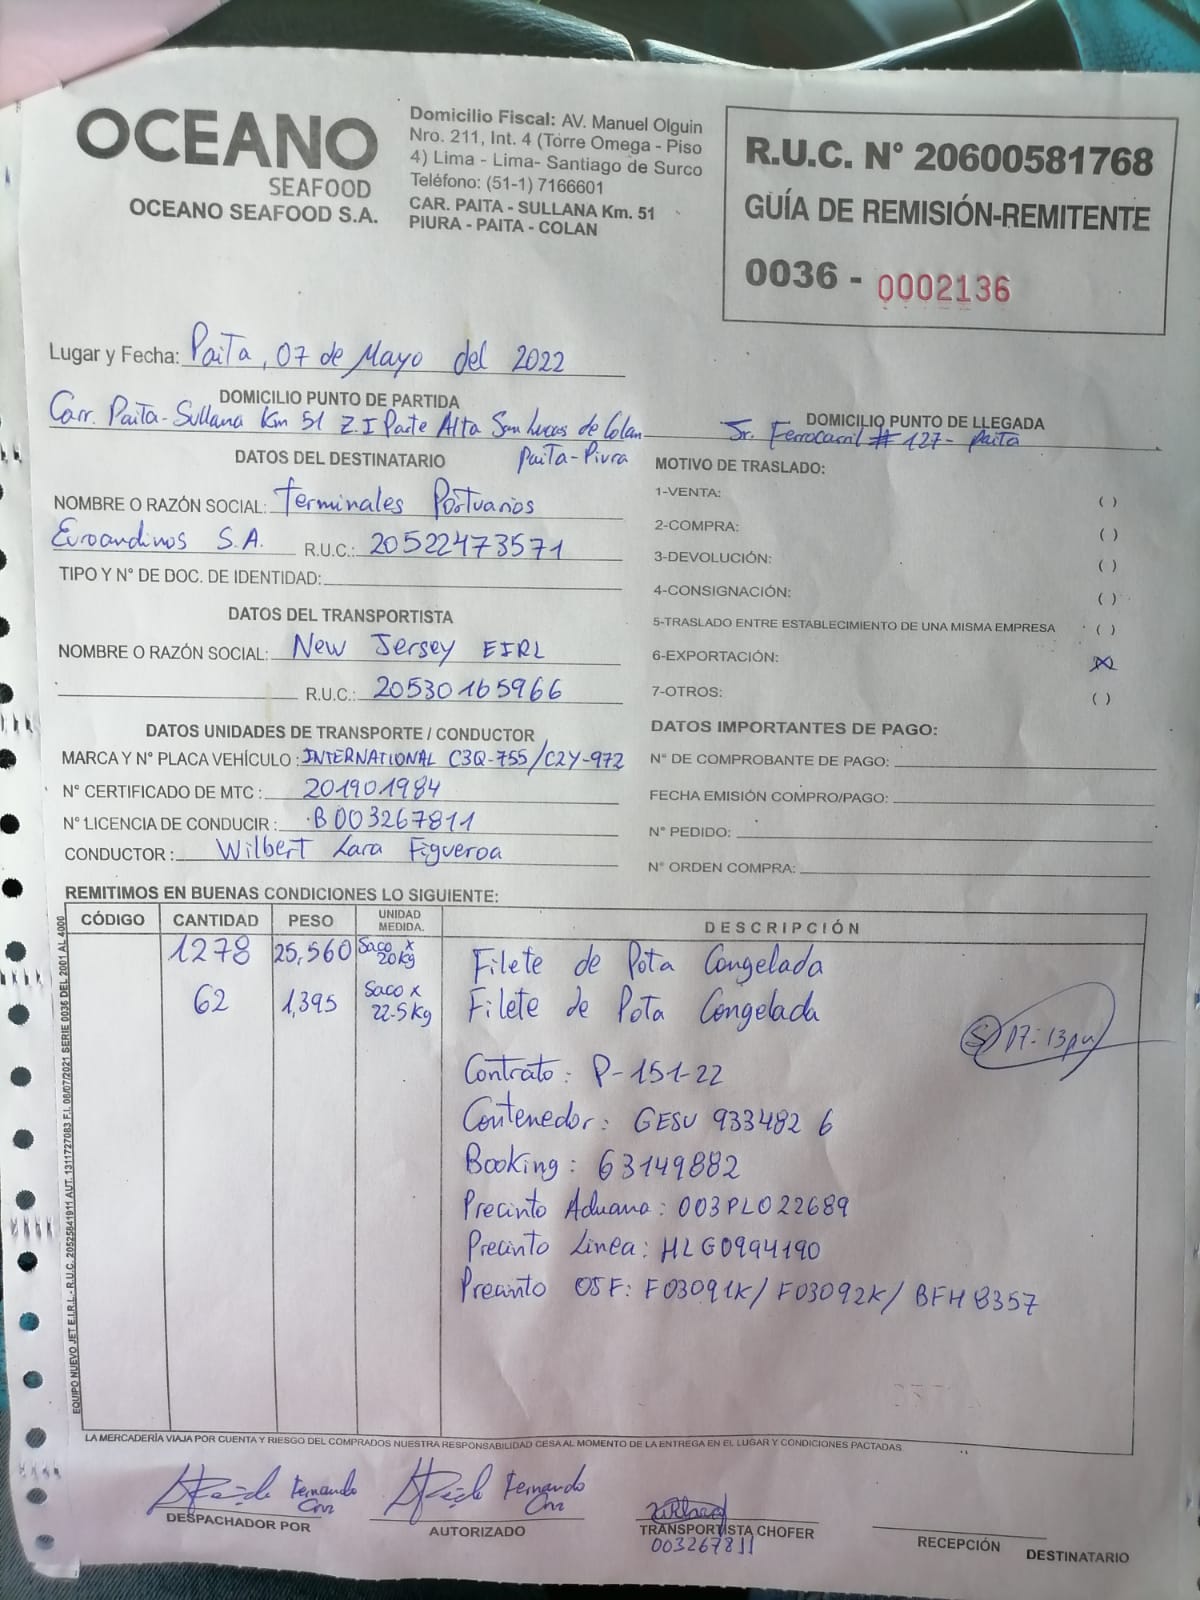 OCEANO
SEAFOOD
OCEANO SEAFOOD S.A.
Domicilio Fiscal: AV. Manuel Olguin
Nro. 211, Int. 4 (Torre Omega - Piso
4) Lima - Lima- Santiago de Surco
Teléfono: (51-1) 7166601
CAR. PAITA - SULLANA Km. 51
PIURA - PAITA - COLAN
R.U.C. N° 20600581768
GUÍA DE REMISIÓN-REMITENTE
0036 - 0002136
Lugar y Fecha: Paita, 07 de Mayo del 2022
DOMICILIO PUNTO DE PARTIDA
Carr. Paita-Sullana Km 51 Z.I Parte Alta San Lucas de Colan
Paita-Piura
DOMICILIO PUNTO DE LLEGADA
Jr. Ferrocarril # 127- Paita
DATOS DEL DESTINATARIO
NOMBRE O RAZÓN SOCIAL: Terminales Portuarios
Euroandinos S.A. R.U.C.: 20522473571
TIPO Y N° DE DOC. DE IDENTIDAD:
DATOS DEL TRANSPORTISTA
NOMBRE O RAZÓN SOCIAL: New Jersey EIRL
R.U.C.: 20530165966
DATOS UNIDADES DE TRANSPORTE / CONDUCTOR
MARCA Y N° PLACA VEHÍCULO : INTERNATIONAL C3Q-755/C2Y-972
N° CERTIFICADO DE MTC : 201901984
N° LICENCIA DE CONDUCIR : B003267811
CONDUCTOR : Wilbert Lara Figueroa
MOTIVO DE TRASLADO:
1-VENTA: ( )
2-COMPRA: ( )
3-DEVOLUCIÓN: ( )
4-CONSIGNACIÓN: ( )
5-TRASLADO ENTRE ESTABLECIMIENTO DE UNA MISMA EMPRESA ( )
6-EXPORTACIÓN: (X)
7-OTROS: ( )
DATOS IMPORTANTES DE PAGO:
N° DE COMPROBANTE DE PAGO:
FECHA EMISIÓN COMPRO/PAGO:
N° PEDIDO:
N° ORDEN COMPRA:
REMITIMOS EN BUENAS CONDICIONES LO SIGUIENTE:
CÓDIGO CANTIDAD PESO UNIDAD MEDIDA. DESCRIPCIÓN
1278 25,560 Saco x 20kg Filete de Pota Congelada
62 1,395 Saco x 22.5Kg Filete de Pota Congelada
(S) 17:13pm
Contrato : P-151-22
Contenedor : GESU 933482 6
Booking : 63149882
Precinto Aduana : 003PL022689
Precinto Linea : HLG0994190
Precinto OSF: F03091K/ F03092K/ BFH8357
EQUIPO NUEVO JET E.I.R.L.- R.U.C. 20525841911 AUT. 1311727083 F.I. 08/07/2021 SERIE 0036 DEL 2001 AL 4000
LA MERCADERÍA VIAJA POR CUENTA Y RIESGO DEL COMPRADOS NUESTRA RESPONSABILIDAD CESA AL MOMENTO DE LA ENTREGA EN EL LUGAR Y CONDICIONES PACTADAS
Fernando
Fernando
DESPACHADOR POR
AUTORIZADO
TRANSPORTISTA CHOFER
003267811
RECEPCIÓN DESTINATARIO